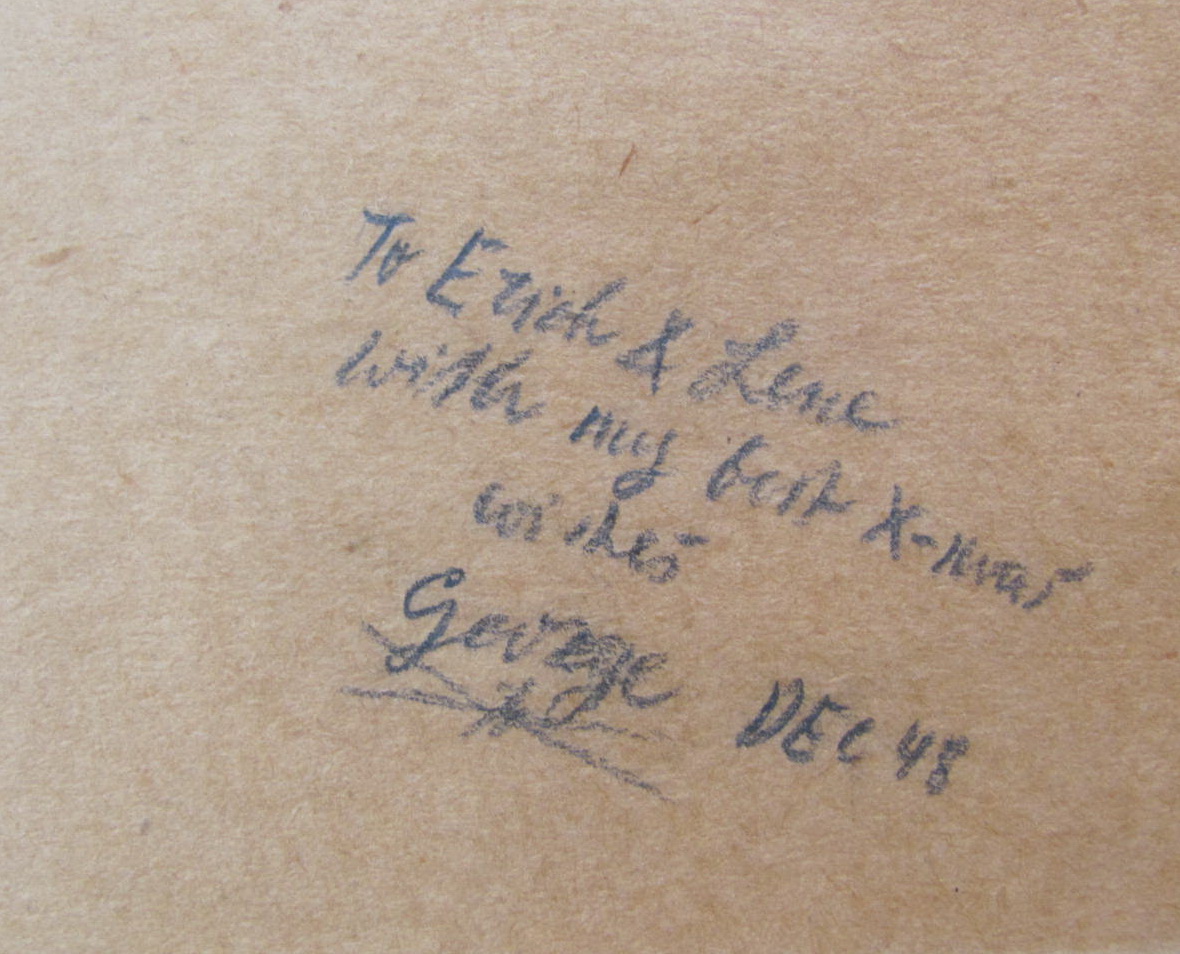 To Erich & Lene
with my best X-mas
wishes
George DEC 48